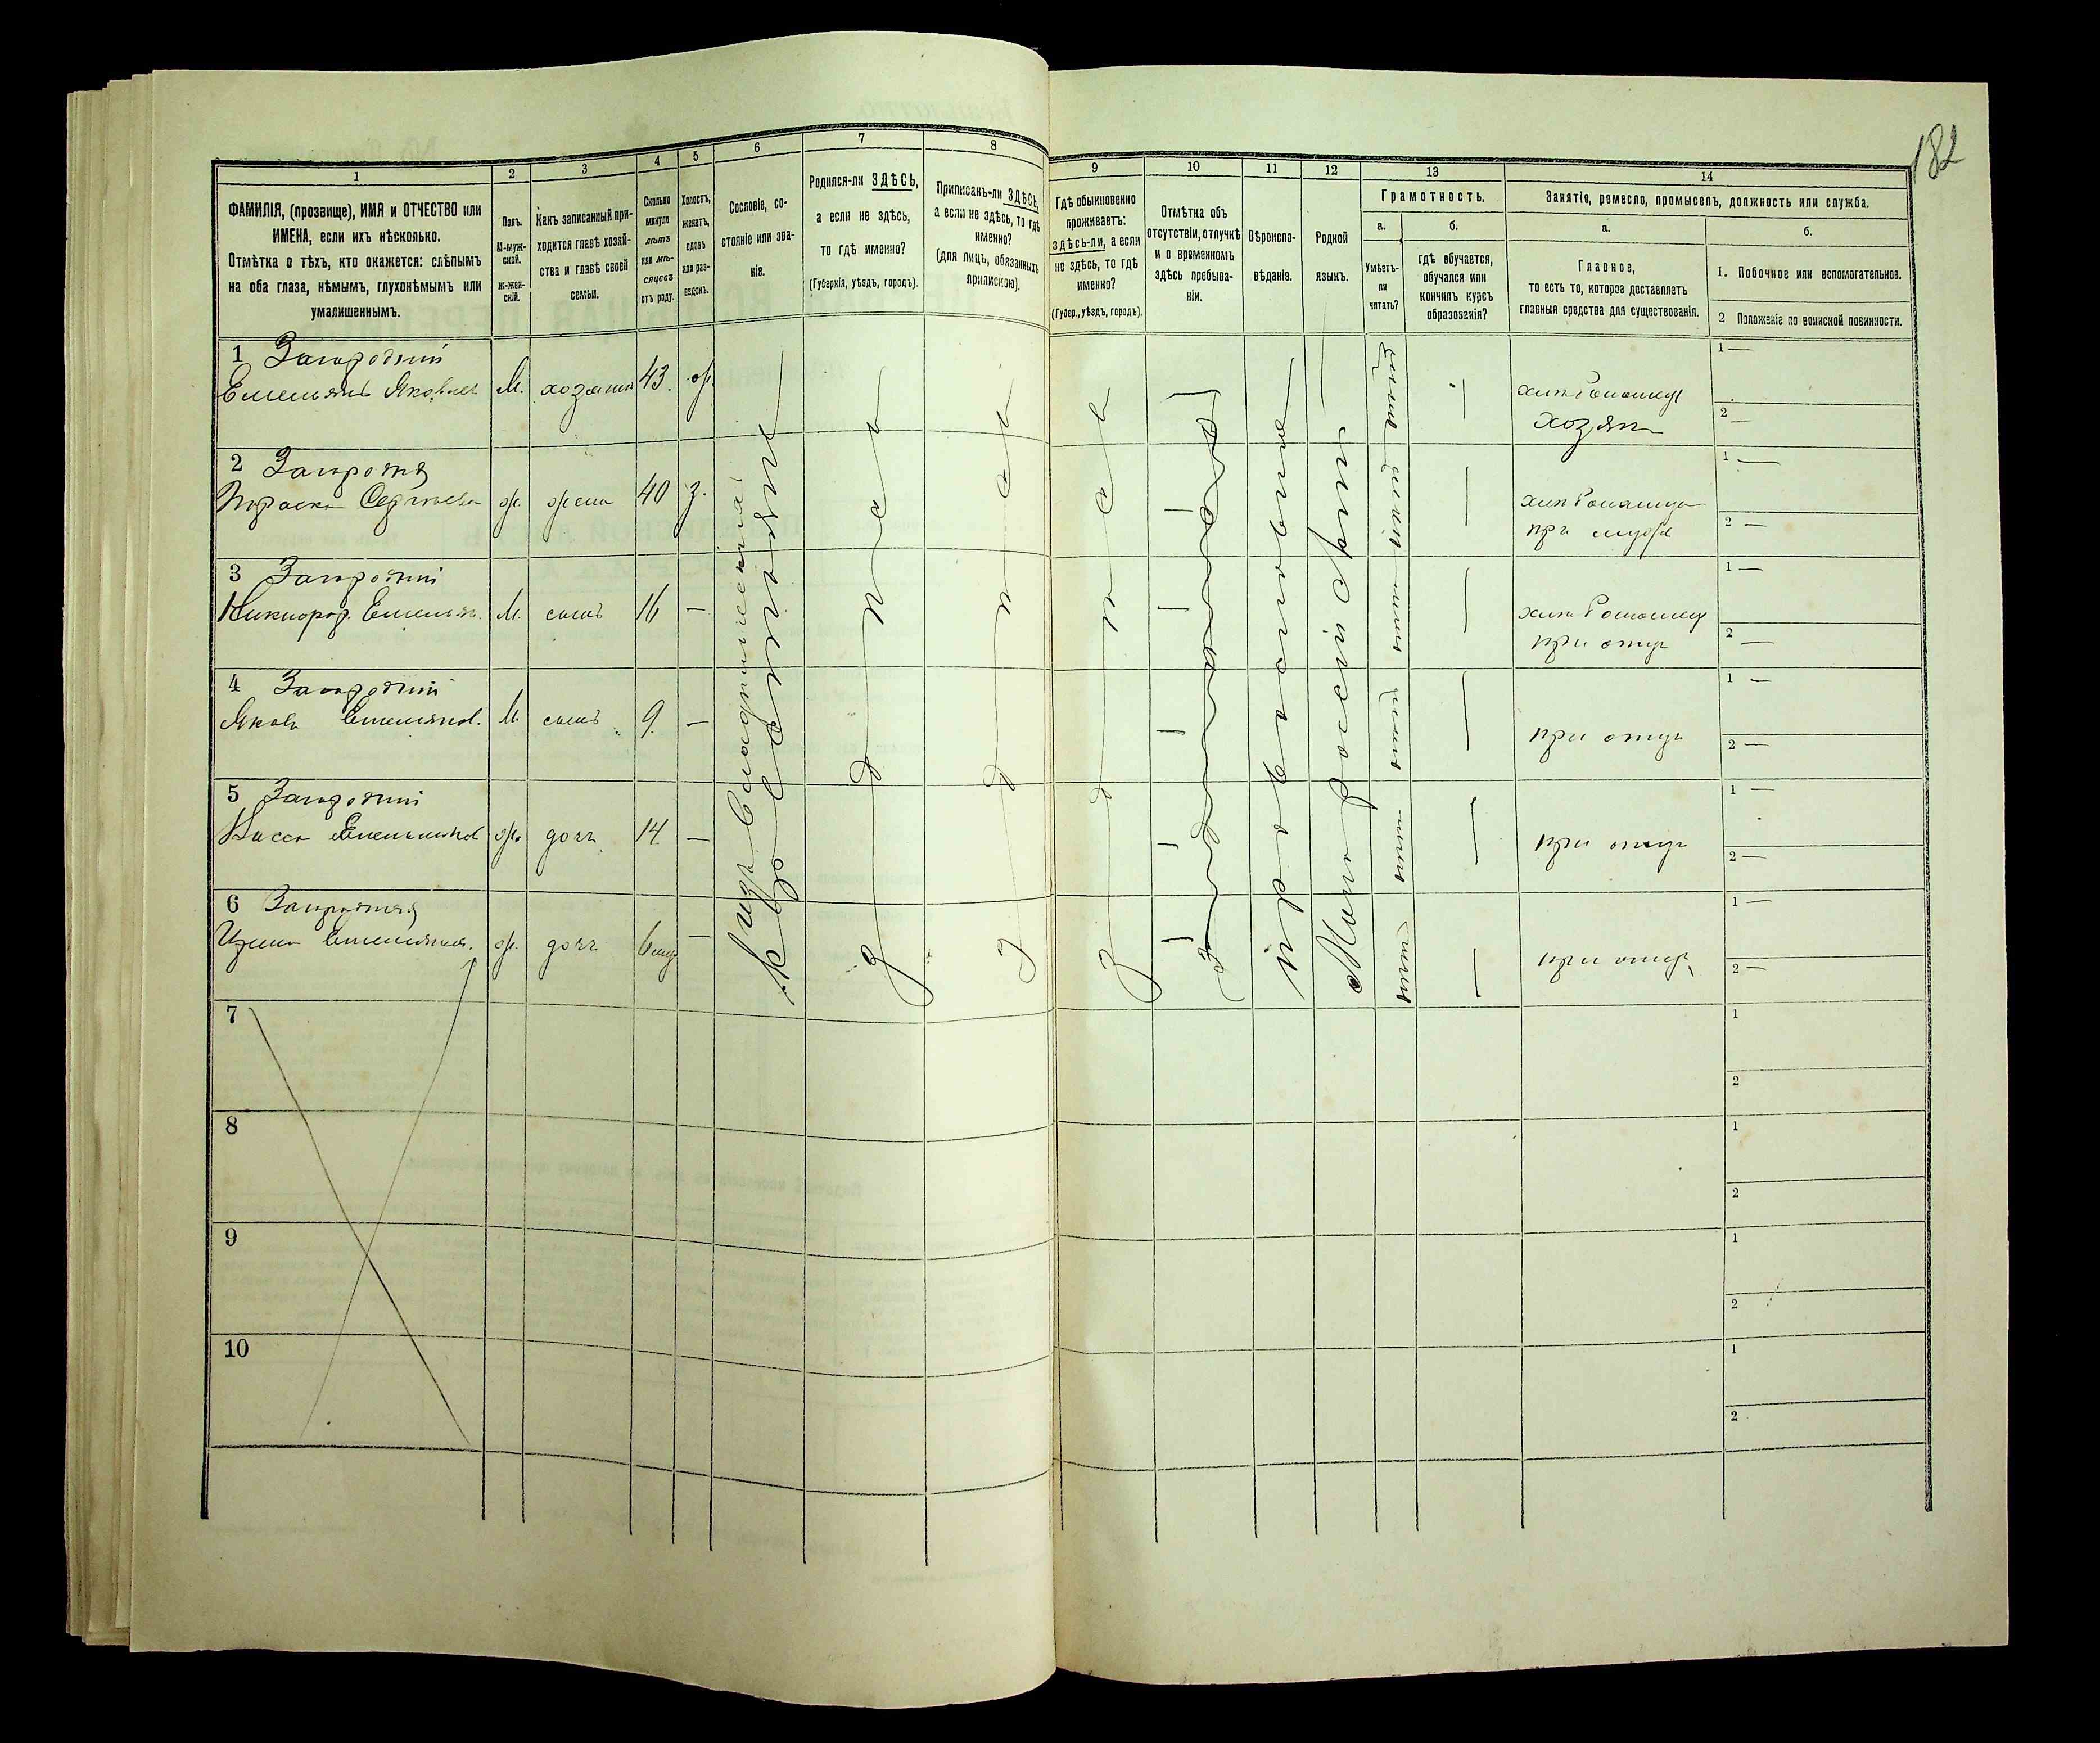 182
1
2
3
4
5
6
7
8
9
10
11
12
13
14
ФАМИЛІЯ, (прозвище), ИМЯ и ОТЧЕСТВО или
ИМЕНА, если ихъ нѣсколько.
Отмѣтка о тѣхъ, кто окажется: слѣпымъ
на оба глаза, нѣмымъ, глухонѣмымъ или
умалишеннымъ.
Полъ.
М-муж-
ской.
Ж-жен-
скій.
Какъ записанный при-
ходится главѣ хозяй-
ства и главѣ своей
семьи.
Сколько
минуло
лѣтъ
или мѣ-
сяцевъ
отъ роду.
Холостъ,
женатъ,
вдовъ
или раз-
веденъ.
Сословіе, со-
стояніе или зва-
ніе.
Родился-ли ЗДѢСЬ,
а если не здѣсь,
то гдѣ именно?
(Губернія, уѣздъ, городъ).
Приписанъ-ли ЗДѢСЬ,
а если не здѣсь, то гдѣ
именно?
(для лицъ, обязанныхъ
припискою).
Гдѣ обыкновенно
проживаетъ:
здѣсь-ли, а если
не здѣсь, то гдѣ
именно?
(Губер., уѣздъ, городъ).
Отмѣтка объ
отсутствіи, отлучкѣ
и о временномъ
здѣсь пребыва-
ніи.
Вѣроиспо-
вѣданіе.
Родной
языкъ.
Грамотность.
а.
Умѣетъ-
ли
читать?
б.
гдѣ обучается,
обучался или
кончилъ курсъ
образованія?
Занятіе, ремесло, промыселъ, должность или служба.
а.
Главное,
то есть то, которое доставляетъ
главныя средства для существованія.
б.
1. Побочное или вспомогательное.
2 Положеніе по воинской повинности.
1 Загородний
Емельянъ Яковлев М. хозяинъ 43. ж.
хозяин
1 —
2 —
2
Сергеева ж. жена 40 з.
при мужe
1 —
2 —
3 Загородний
Никифор. Емельян. М. сынъ 16 —
при отце
1 —
2 —
4 Загородний
Яковъ Емельянов. М. сынъ 9. —
при отце
1 —
2 —
5 Загородний
Васса ж. дочь 14 —
при отце
1 —
2 —
6
ж. дочь 6 —
при отце
1 —
2 —
изъ владельческих
крестьянъ
здесь
здесь
здесь
православные
Малороссийский
7
1
2
8
1
2
9
1
2
10
1
2